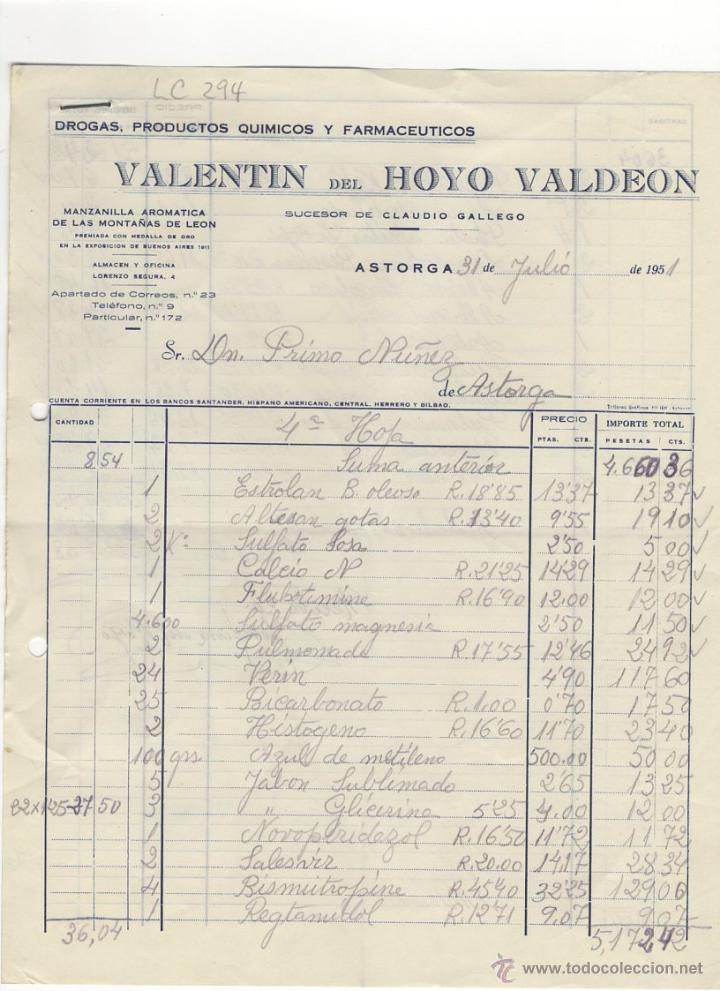 LC 294
DROGAS, PRODUCTOS QUIMICOS Y FARMACEUTICOS
VALENTIN DEL HOYO VALDEON
MANZANILLA AROMATICA
DE LAS MONTAÑAS DE LEON
PREMIADA CON MEDALLA DE ORO
EN LA EXPOSICION DE BUENOS AIRES 1911
ALMACEN Y OFICINA
LORENZO SEGURA, 4
Apartado de Correos, n.º 23
Teléfono, n.º 9
Particular, n.º 172
SUCESOR DE CLAUDIO GALLEGO
ASTORGA 31 de Julio de 1951
Sr. Dn. Primo Nuñez
de Astorga
CUENTA CORRIENTE EN LOS BANCOS SANTANDER, HISPANO AMERICANO, CENTRAL, HERRERO Y BILBAO.
CANTIDAD PRECIO IMPORTE TOTAL
PTAS. CTS. PESETAS CTS.
4ª Hoja
8 54 Suma anterior 4.660 36
1 Estrolan B. oleoso R.18'85 13'37 13 37
2 Altesan gotas R.13'40 9'55 19 10
2 Kº Sulfato Sosa 2'50 5 00
1 Calcio N R.21'25 14'29 14 29
1 Flubotimine R.16'90 12.00 12 00
4.600 Sulfato magnesia 2'50 11 50
2 Pulmonada R.17'55 12'46 24 92
24 Verin 4'90 117 60
25 Bicarbonato R.1.00 0'70 17 50
2 Histogeno R.16'60 11'70 23 40
100 grs Azul de metileno 500.00 50 00
5 Jabon Sublimado 2'65 13 25
22x1'25-27 50 3 " Glicerina 5'25 4.00 12 00
1 Novoperidazol R.16'50 11'72 11 72
2 Salesvir R.20.00 14.17 28 34
4 Bismutropine R.45'40 32'25 129 06
1 Regtamidol R.12'71 9.07 9 07
36,04 5,172 42
© todocoleccion.net
www.todocoleccion.net